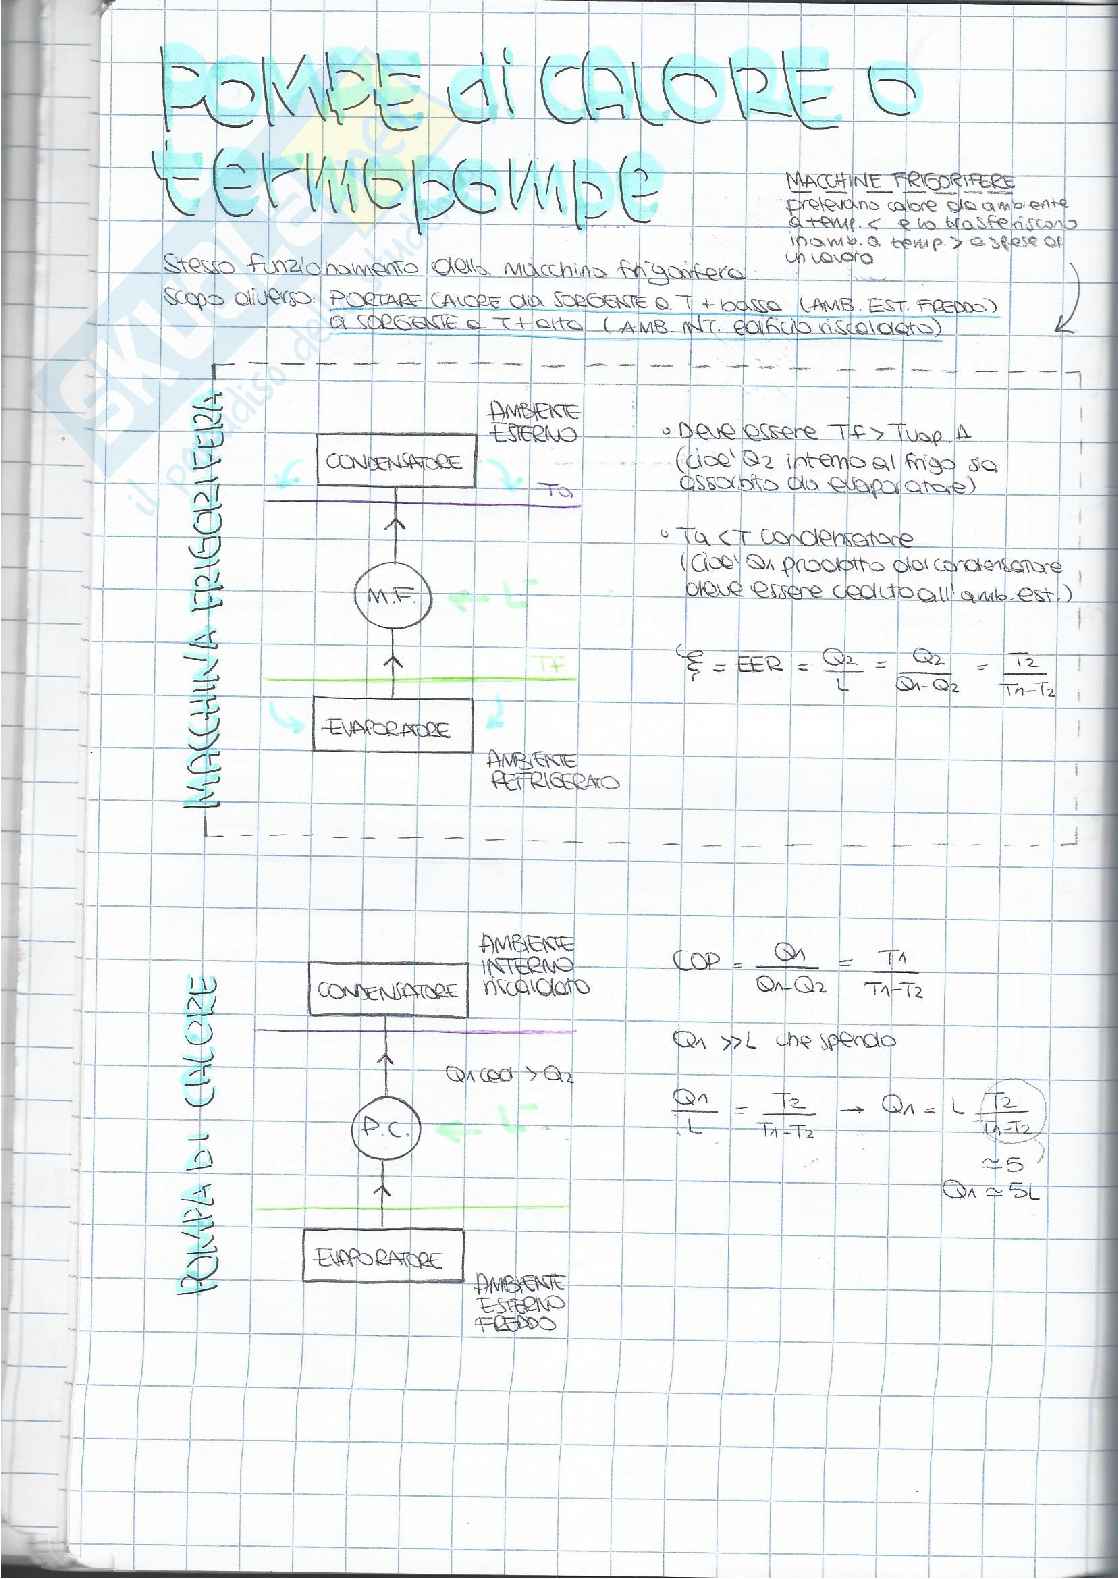 POMPE di CALORE o
termopompe
MACCHINE FRIGORIFERE
prelevano calore da ambiente
a temp. < e lo trasferiscono
in amb. a temp. > a spese di
un lavoro
Stesso funzionamento della macchina frigorifera
scopo diverso: PORTARE CALORE da SORGENTE a T + bassa (AMB. EST. FREDDO)
a SORGENTE a T + alta (AMB. INT. edificio riscaldato)
MACCHINA FRIGORIFERA
AMBIENTE
ESTERNO
CONDENSATORE
Ta
M.F.
L
Tf
EVAPORATORE
AMBIENTE
REFRIGERATO
• Deve essere Tf > Tvap A
(cioe' Q2 interno al frigo sia
assorbito da evaporatore)
• Ta < T condensatore
(cioe' Q1 prodotto dal condensatore
deve essere ceduto all' amb. est.)
ξ = EER = Q2/L = Q2/Q1-Q2 = T2/T1-T2
POMPA DI CALORE
AMBIENTE
INTERNO
riscaldato
CONDENSATORE
Q1 ced > Q2
P.C.
L
EVAPORATORE
AMBIENTE
ESTERNO
FREDDO
COP = Q1/Q1-Q2 = T1/T1-T2
Q1 >> L che spendo
Q1/L = T2/T1-T2 → Q1 = L T2/T1-T2
≃ 5
Q1 ≃ 5L